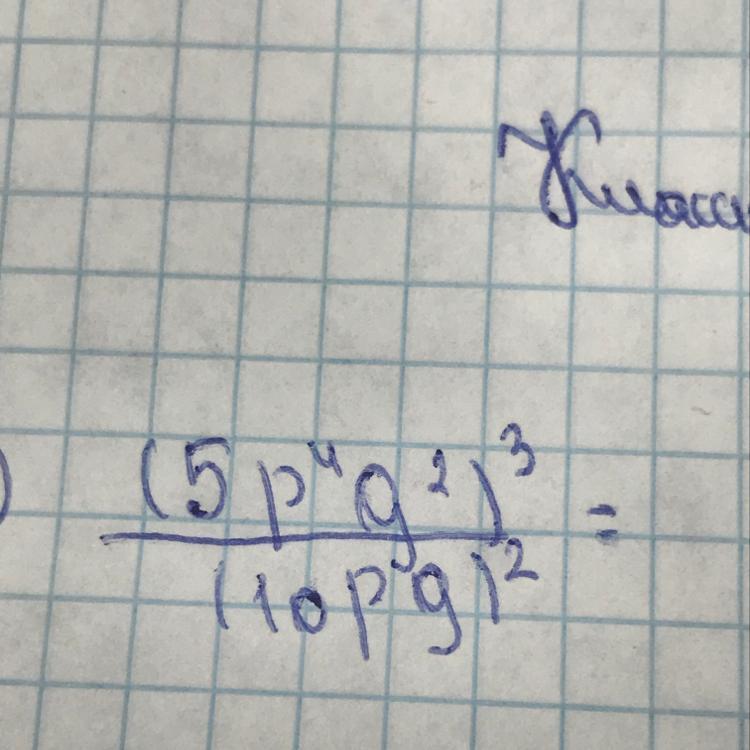 Класс
) (5p⁴g²)³
(10p⁵g)² =